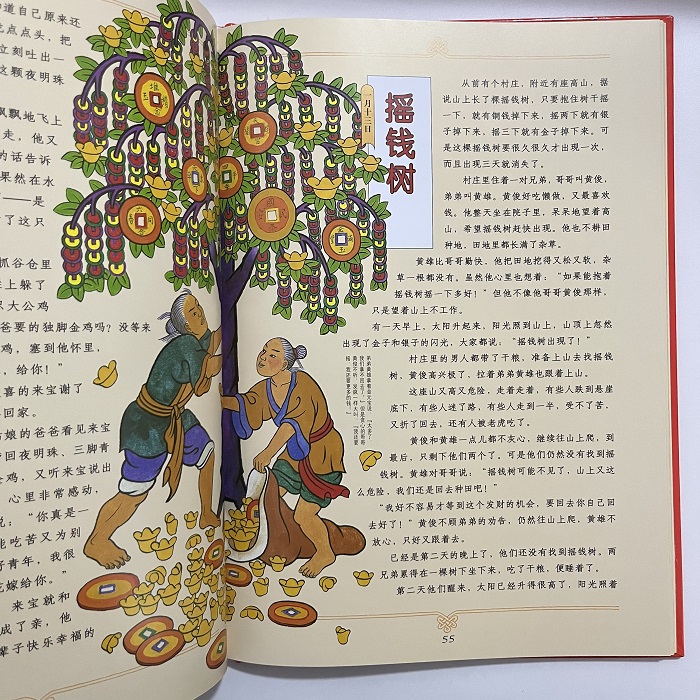 道自己原来还
点点头，把
立刻吐出一
这颗夜明珠
飘飘地飞上
走，他又
的话告诉
果然在水
——是
了这只
抓谷仓里
躲了
只大公鸡
爸要的独脚金鸡吗？没等来
鸡，塞到他怀里，
，给你！”
喜的来宝谢了
回家。
姑娘的爸爸看见来宝
带回夜明珠、三脚青
金鸡，又听来宝说出
心里非常感动，
说：“你真是一
能吃苦又为别
好青年，我很
嫁给你。”
来宝就和
成了亲，他
辈子快乐幸福的
一月十三日
摇钱树
从前有个村庄，附近有座高山，据
说山上长了棵摇钱树，只要抱住树干摇
一下，就有铜钱掉下来，摇两下就有银
子掉下来，摇三下就有金子掉下来。可
是这棵摇钱树要很久很久才出现一次，
而且出现三天就消失了。
村庄里住着一对兄弟，哥哥叫黄俊，
弟弟叫黄雄。黄俊好吃懒做，又最喜欢
钱。他整天坐在院子里，呆呆地望着高
山，希望摇钱树赶快出现。他也不耕田
种地，田地里都长满了杂草。
黄雄比哥哥勤快。他把田地挖得又松又软，杂
草一根都没有。虽然他心里也想着：“如果能抱着
摇钱树摇一下多好！”但他不像他哥哥黄俊那样，
只是望着山上不工作。
有一天早上，太阳升起来，阳光照到山上，山顶上忽然
出现了金子和银子的闪光，大家都说：“摇钱树出现了！”
村庄里的男人都带了干粮，准备上山去找摇钱
树，黄俊高兴极了，拉着弟弟黄雄也跟着上山。
这座山又高又危险，走着走着，有些人跌到悬崖
底下，有些人迷了路，有些人走到一半，受不了苦，
又折了回去，还有人被老虎吃了。
黄俊和黄雄一点儿都不灰心，继续往山上爬，到
最后，只剩下他们两个了。可是他们仍然没有找到摇
钱树。黄雄对哥哥说：“摇钱树可能不见了，山上又这
么危险，我们还是回去种田吧！”
“我好不容易才等到这个发财的机会，要回去你自己回
去好了！”黄俊不顾弟弟的劝告，仍然往山上爬，黄雄不
放心，只好又跟着去。
已经是第二天的晚上了，他们还没有找到摇钱树。两
兄弟累得在一棵树下坐下来，吃了干粮，便睡着了。
第二天他们醒来，太阳已经升得很高了，阳光照着
55